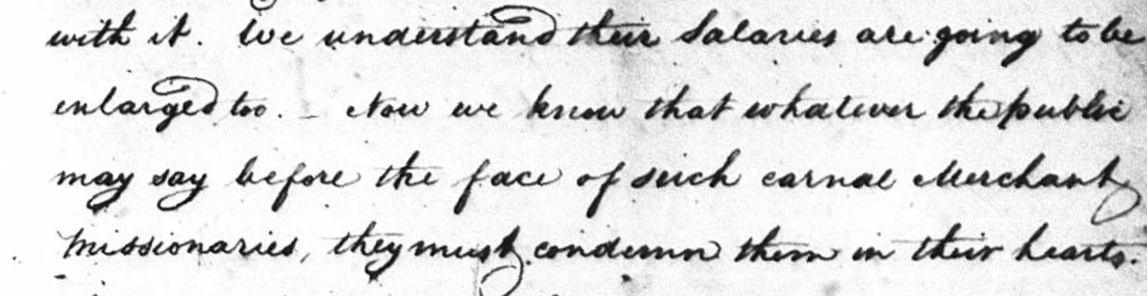 with it. We understand their Salaries are going to be
enlarged too. – Now we know that whatever the public
may say before the face of such carnal Merchant
missionaries, they must condemn them in their hearts.